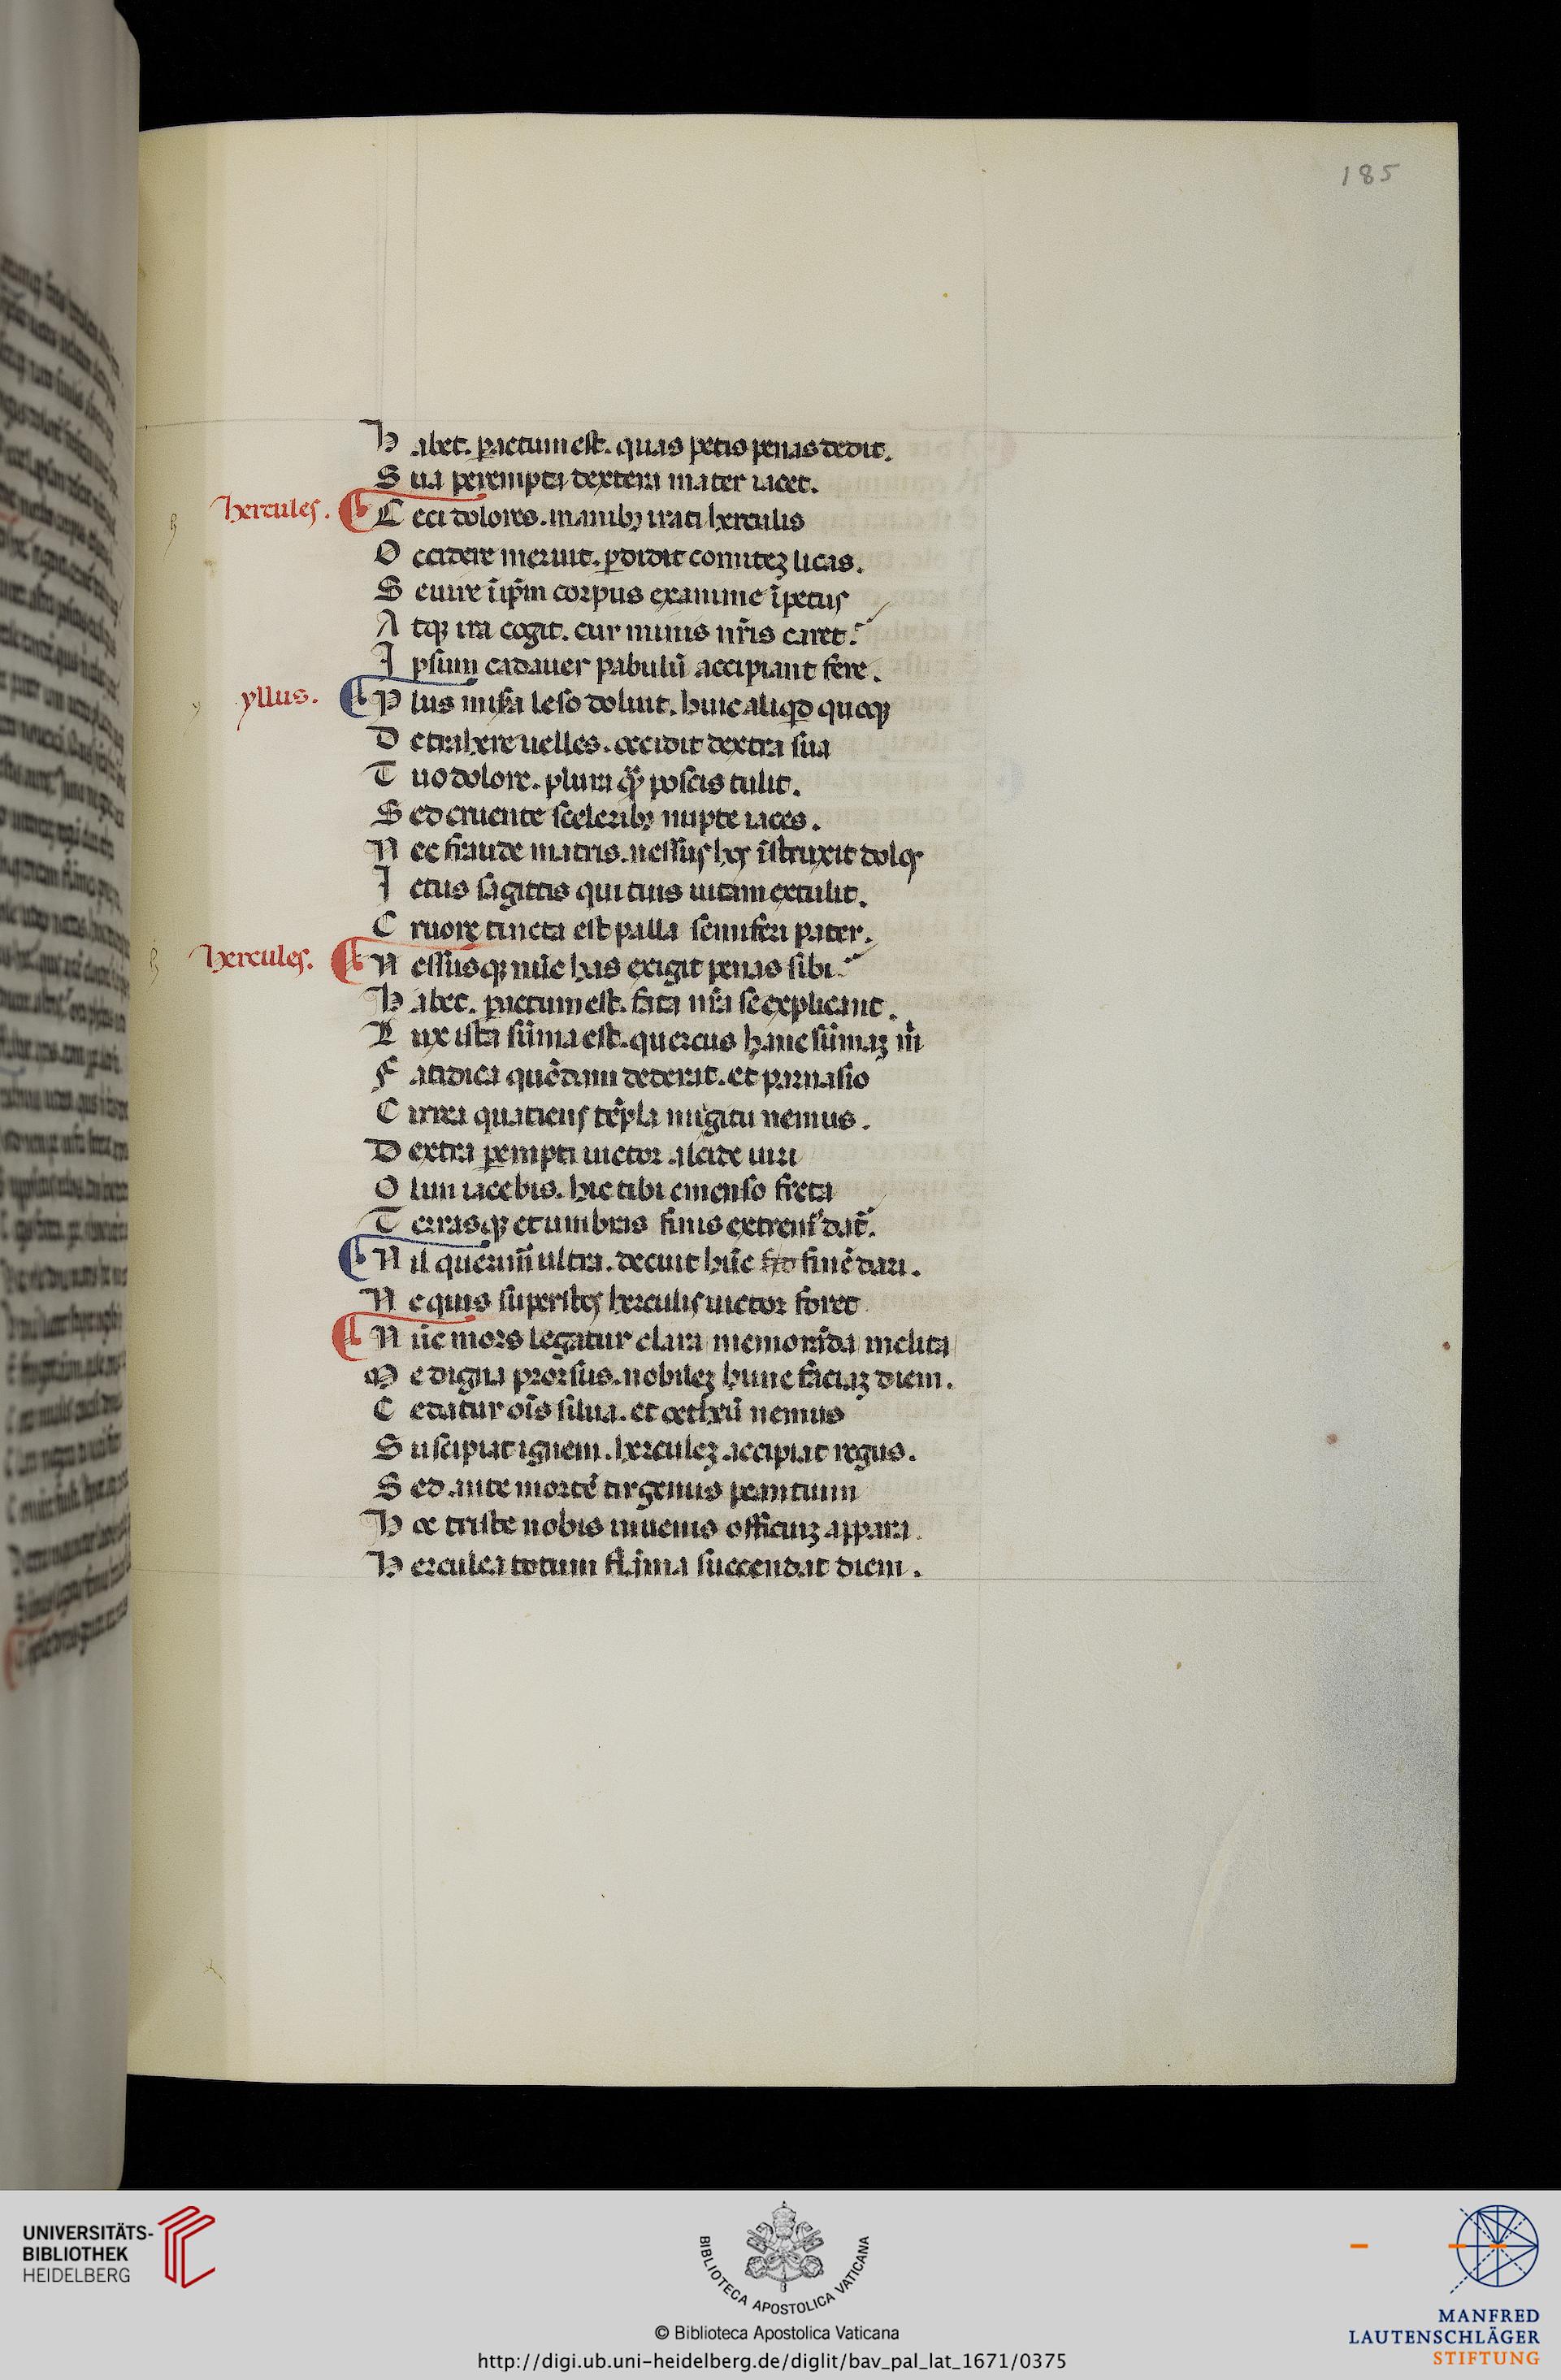 185
Habet. peractum est. quas petis penas dedit.
Sua perempta dextera mater iacet.
hercules. Ceci dolores. manibꝫ irati herculis
Occidere meruit. ꝑdidit comiteꝫ licas.
Seuire ī ip̄m corpus exanime īpetus
Atqꝫ ira cogit. cur minis nr̄is caret.
Ipsum cadauer pabulū accipiant fere.
yllus. Plus mīsa leso doluit. huic aliqd quoqꝫ
Detrahere uelles. occidit dextra sua
Tuo dolore. plura qͣꝫ poscis tulit.
Sed cruente sceleribꝫ nupte iaces.
Nec fraude matris. nessus hos īstruxit dolos
Ictus sagittis qui tuis uitam extulit.
Cruore tincta est palla semifera pater.
hercules. Nessusqꝫ nūc has exigit penas sibi.
Habet. peractum est. fata nr̄a se explicant.
Lux ista sūma est. quercus hanc sūmaꝫ m̄
Fatidica quōdam dederat. et parnasio
Cirrea quatiens tēpla mugitu nemus.
Dextra ꝑempti uictor alcide uiri
Olim iacebis. hic tibi emenso freta
Terrasqꝫ et umbras finis extrem᷒ dat᷑.
Nil querim̄ ultra. decuit hūc finē dari.
Nequis superstes herculis uictor foret
Nūc mors legatur clara memorāda inclita
Me digna prorsus. nobileꝫ hunc faciaꝫ diem.
Cedatur oīs silua. et oetheū nemus
Suscipiat ignem. herculeꝫ accipiat rogus.
Sed ante mortē tu genus peantium
Hoc triste nobis iuuenis officiuꝫ appara.
Herculea totum flāma succendat diem.
UNIVERSITÄTS-
BIBLIOTHEK
HEIDELBERG
BIBLIOTECA APOSTOLICA VATICANA
© Biblioteca Apostolica Vaticana
http://digi.ub.uni-heidelberg.de/diglit/bav_pal_lat_1671/0375
MANFRED
LAUTENSCHLÄGER
STIFTUNG